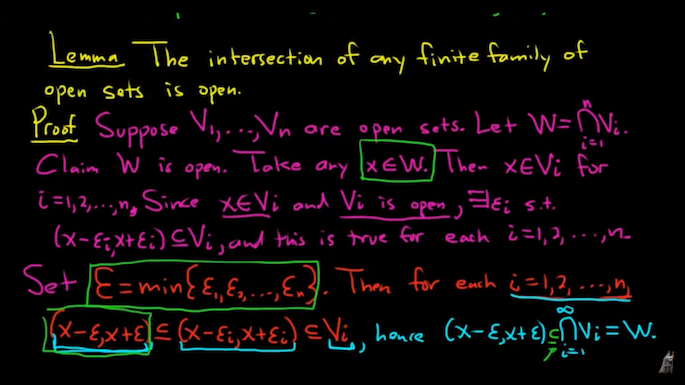 Lemma The intersection of any finite family of
open sets is open.
Proof Suppose V₁,...,Vₙ are open sets. Let W=⋂ⁿᵢ₌₁Vᵢ.
Claim W is open. Take any x∈W. Then x∈Vᵢ for
i=1,2,...,n. Since x∈Vᵢ and Vᵢ is open, ∃εᵢ s.t.
(x-εᵢ,x+εᵢ)⊆Vᵢ, and this is true for each i=1,2,...,n.
Set ε=min{ε₁,ε₂,...,εₙ}. Then for each i=1,2,...,n,
(x-ε,x+ε)⊆(x-εᵢ,x+εᵢ)⊆Vᵢ, hence (x-ε,x+ε)⊆⋂^∞ᵢ₌₁Vᵢ=W.